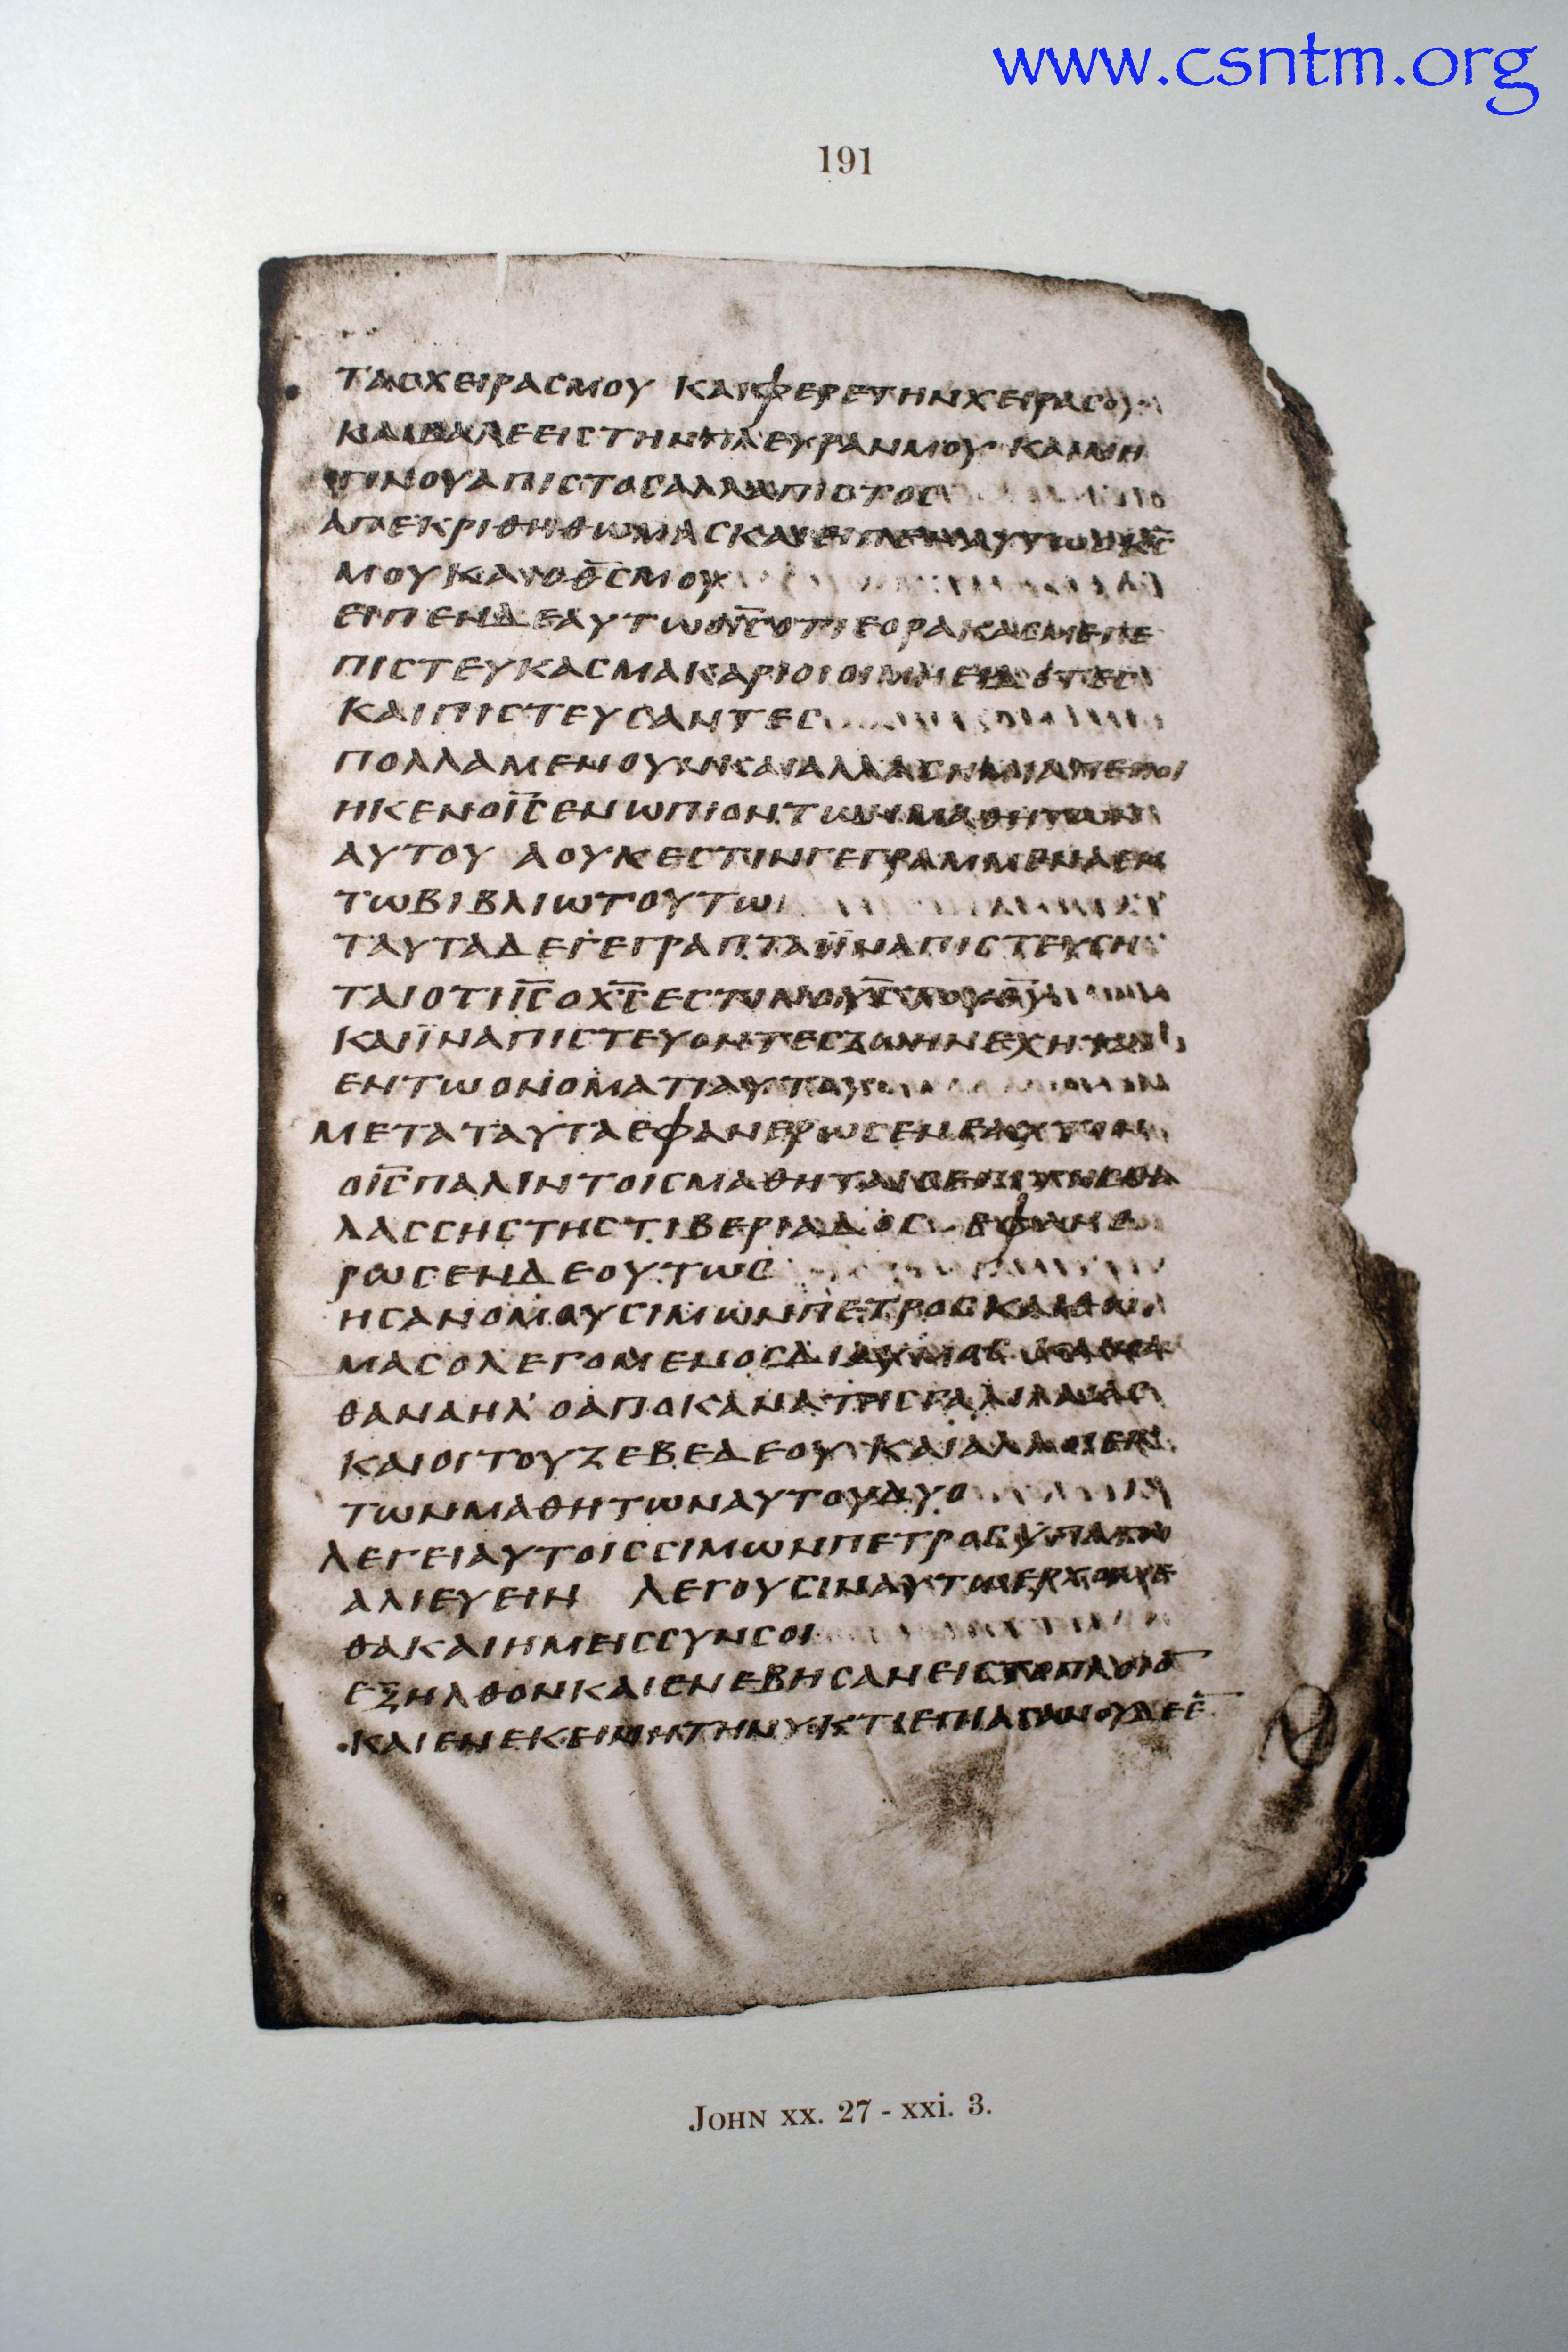 www.csntm.org
191
ΤΑΣ ΧΕΙΡΑΣ ΜΟΥ ΚΑΙ ΦΕΡΕ ΤΗΝ ΧΕΙΡΑ ΣΟΥ
ΚΑΙ ΒΑΛΕ ΕΙΣ ΤΗΝ ΠΛΕΥΡΑΝ ΜΟΥ ΚΑΙ ΜΗ
ΓΙΝΟΥ ΑΠΙΣΤΟΣ ΑΛΛΑ ΠΙΣΤΟΣ
ΑΠΕΚΡΙΘΗ ΘΩΜΑΣ ΚΑΙ ΕΙΠΕΝ ΑΥΤΩ Ο Κ̅Σ̅
ΜΟΥ ΚΑΙ Ο Θ̅Σ̅ ΜΟΥ
ΕΙΠΕΝ ΔΕ ΑΥΤΩ Ο Ι̅Σ̅ ΟΤΙ ΕΟΡΑΚΑΣ ΜΕ ΠΕ
ΠΙΣΤΕΥΚΑΣ ΜΑΚΑΡΙΟΙ ΟΙ ΜΗ ΕΙΔΟΤΕΣ
ΚΑΙ ΠΙΣΤΕΥΣΑΝΤΕΣ
ΠΟΛΛΑ ΜΕΝ ΟΥΝ ΚΑΙ ΑΛΛΑ ΣΗΜΙΑ ΠΕΠΟΙ
ΗΚΕΝ Ο Ι̅Σ̅ ΕΝΩΠΙΟΝ ΤΩΝ ΜΑΘΗΤΩΝ
ΑΥΤΟΥ Α ΟΥΚ ΕΣΤΙΝ ΓΕΓΡΑΜΜΕΝΑ ΕΝ
ΤΩ ΒΙΒΛΙΩ ΤΟΥΤΩ
ΤΑΥΤΑ ΔΕ ΓΕΓΡΑΠΤΑΙ ΪΝΑ ΠΙΣΤΕΥΣΗ
ΤΑΙ ΟΤΙ Ι̅Σ̅ Ο Χ̅Σ̅ ΕΣΤΙΝ Ο Υ̅Σ̅ ΤΟΥ Θ̅Υ̅
ΚΑΙ ΪΝΑ ΠΙΣΤΕΥΟΝΤΕΣ ΖΩΗΝ ΕΧΗΤΑΙ
ΕΝ ΤΩ ΟΝΟΜΑΤΙ ΑΥΤΟΥ
ΜΕΤΑ ΤΑΥΤΑ ΕΦΑΝΕΡΩΣΕΝ ΕΑΥΤΟΝ
Ο Ι̅Σ̅ ΠΑΛΙΝ ΤΟΙΣ ΜΑΘΗΤΑΙΣ ΕΠΙ ΤΗΣ ΘΑ
ΛΑΣΣΗΣ ΤΗΣ ΤΙΒΕΡΙΑΔΟΣ ΕΦΑΝΕ
ΡΩΣΕΝ ΔΕ ΟΥΤΩΣ
ΗΣΑΝ ΟΜΟΥ ΣΙΜΩΝ ΠΕΤΡΟΣ ΚΑΙ ΘΩ
ΜΑΣ Ο ΛΕΓΟΜΕΝΟΣ ΔΙΔΥΜΟΣ ΚΑΙ ΝΑ
ΘΑΝΑΗΛ Ο ΑΠΟ ΚΑΝΑ ΤΗΣ ΓΑΛΙΛΑΙΑΣ
ΚΑΙ ΟΙ ΤΟΥ ΖΕΒΕΔΕΟΥ ΚΑΙ ΑΛΛΟΙ ΕΚ
ΤΩΝ ΜΑΘΗΤΩΝ ΑΥΤΟΥ ΔΥΟ
ΛΕΓΕΙ ΑΥΤΟΙΣ ΣΙΜΩΝ ΠΕΤΡΟΣ ΥΠΑΓΩ
ΑΛΙΕΥΕΙΝ ΛΕΓΟΥΣΙΝ ΑΥΤΩ ΕΡΧΟΜΕ
ΘΑ ΚΑΙ ΗΜΕΙΣ ΣΥΝ ΣΟΙ
ΕΞΗΛΘΟΝ ΚΑΙ ΕΝΕΒΗΣΑΝ ΕΙΣ ΤΟ ΠΛΟΙΟ̅
ΚΑΙ ΕΝ ΕΚΕΙΝΗ ΤΗ ΝΥΚΤΙ ΕΠΙΑΣΑΝ ΟΥΔΕ
JOHN xx. 27 - xxi. 3.